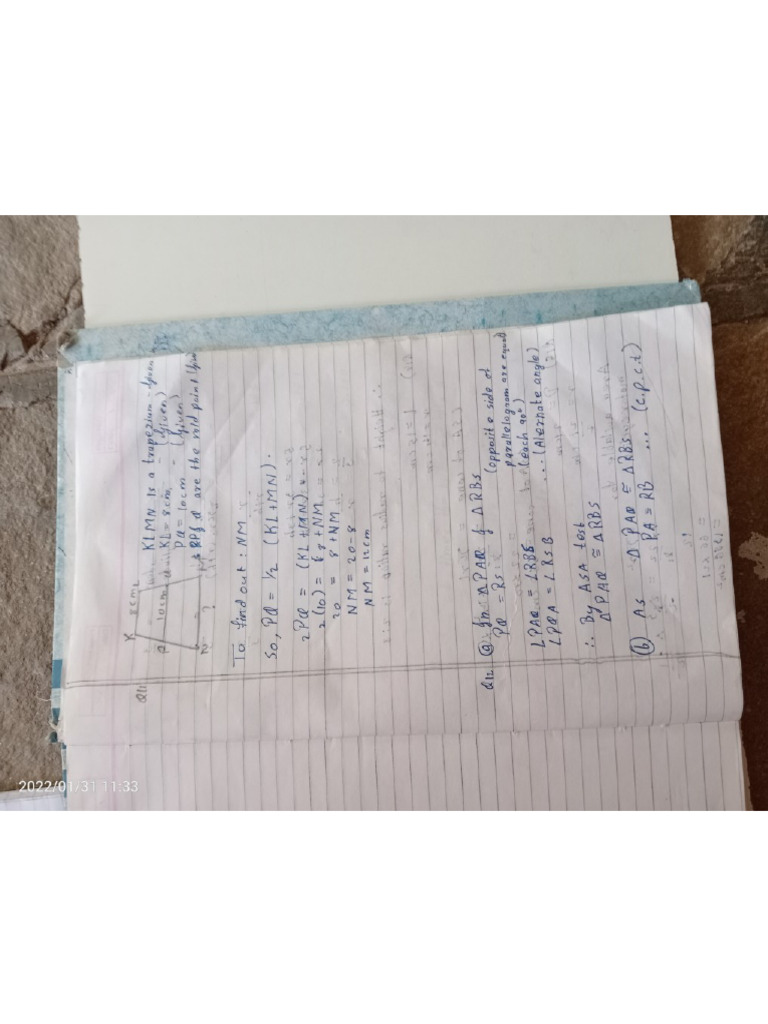 Q11
K 8cm L
P 10cm
N ?
KLMN is a trapezium - (given)
KL = 8cm, - (given)
PQ = 10cm - (given)
P & Q are the mid point
To find out : NM
So, PQ = 1/2 (KL+MN).
2PQ = (KL+MN)
2(10) = 8+NM
20 = 8+NM
NM = 20-8
NM = 12cm
Q12 (a) In △PAQ & △RBS
PQ = RS (opposite side of
parallelogram are equal
∠PAQ = ∠RBS (each 90°)
∠PQA = ∠RSB ... (Alernate angle)
∴ By ASA test
△PAQ ≅ △RBS
(b) As △PAQ ≅ △RBS
PA = RB ... (c.p.c.t)
2022/01/31 11:33